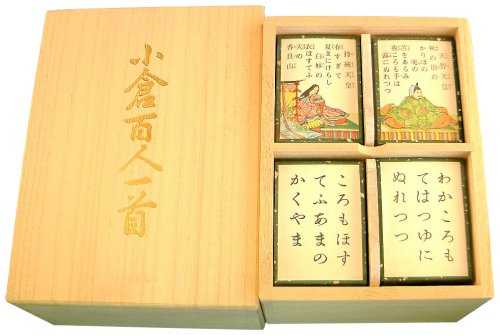 小倉百人一首
天智天皇
秋の田の
かりほの
庵の
苫をあらみ
わがころも手は
露にぬれつつ
持統天皇
春すぎて
夏きにけらし
白妙の
衣ほすてふ
天の
香具山
わかころも
てはつゆに
ぬれつつ
ころもほす
てふあまの
かくやま